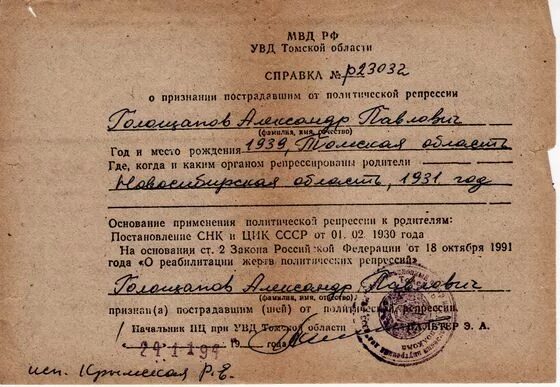 МВД РФ
УВД Томской области
СПРАВКА № р23032
о признании пострадавшим от политической репрессии
Голощапов Александр Павлович
(фамилия, имя, отчество)
Год и место рождения 1939, Томская область
Где, когда и каким органом репрессированы родители
Новосибирская область, 1931 год
Основание применения политической репрессии к родителям:
Постановление СНК и ЦИК СССР от 01. 02 1930 года
На основании ст. 2 Закона Российской Федерации от 18 октября 1991
года «О реабилитации жертв политических репрессий»
Голощапов Александр Павлович
(фамилия, имя, отчество)
признан(а) пострадавшим (шей) от политической репрессии.
Начальник ИЦ при УВД Томской области ВАЛЬТЕР Э. А.
24 11 94 19 года
исп. Крымская Р.Е.